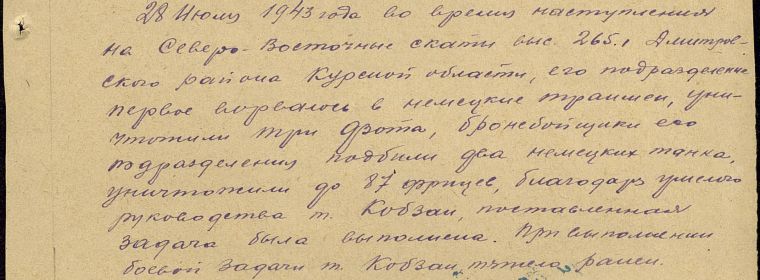 28 Июля 1943 года во время наступления
на Северо-Восточные скаты выс. 265.1 Дмитров-
ского района Курской области, его подразделение
первое ворвалось в немецкие траншеи, уни-
чтожили три Дзота, бронебойщики его
подразделения подбили два немецких танка,
уничтожили до 87 фрицев, благодаря умелого
руководства т. Кобзаи, поставленная
задача была выполнена. При выполнении
боевой задачи т. Кобзаи тяжело ранен.